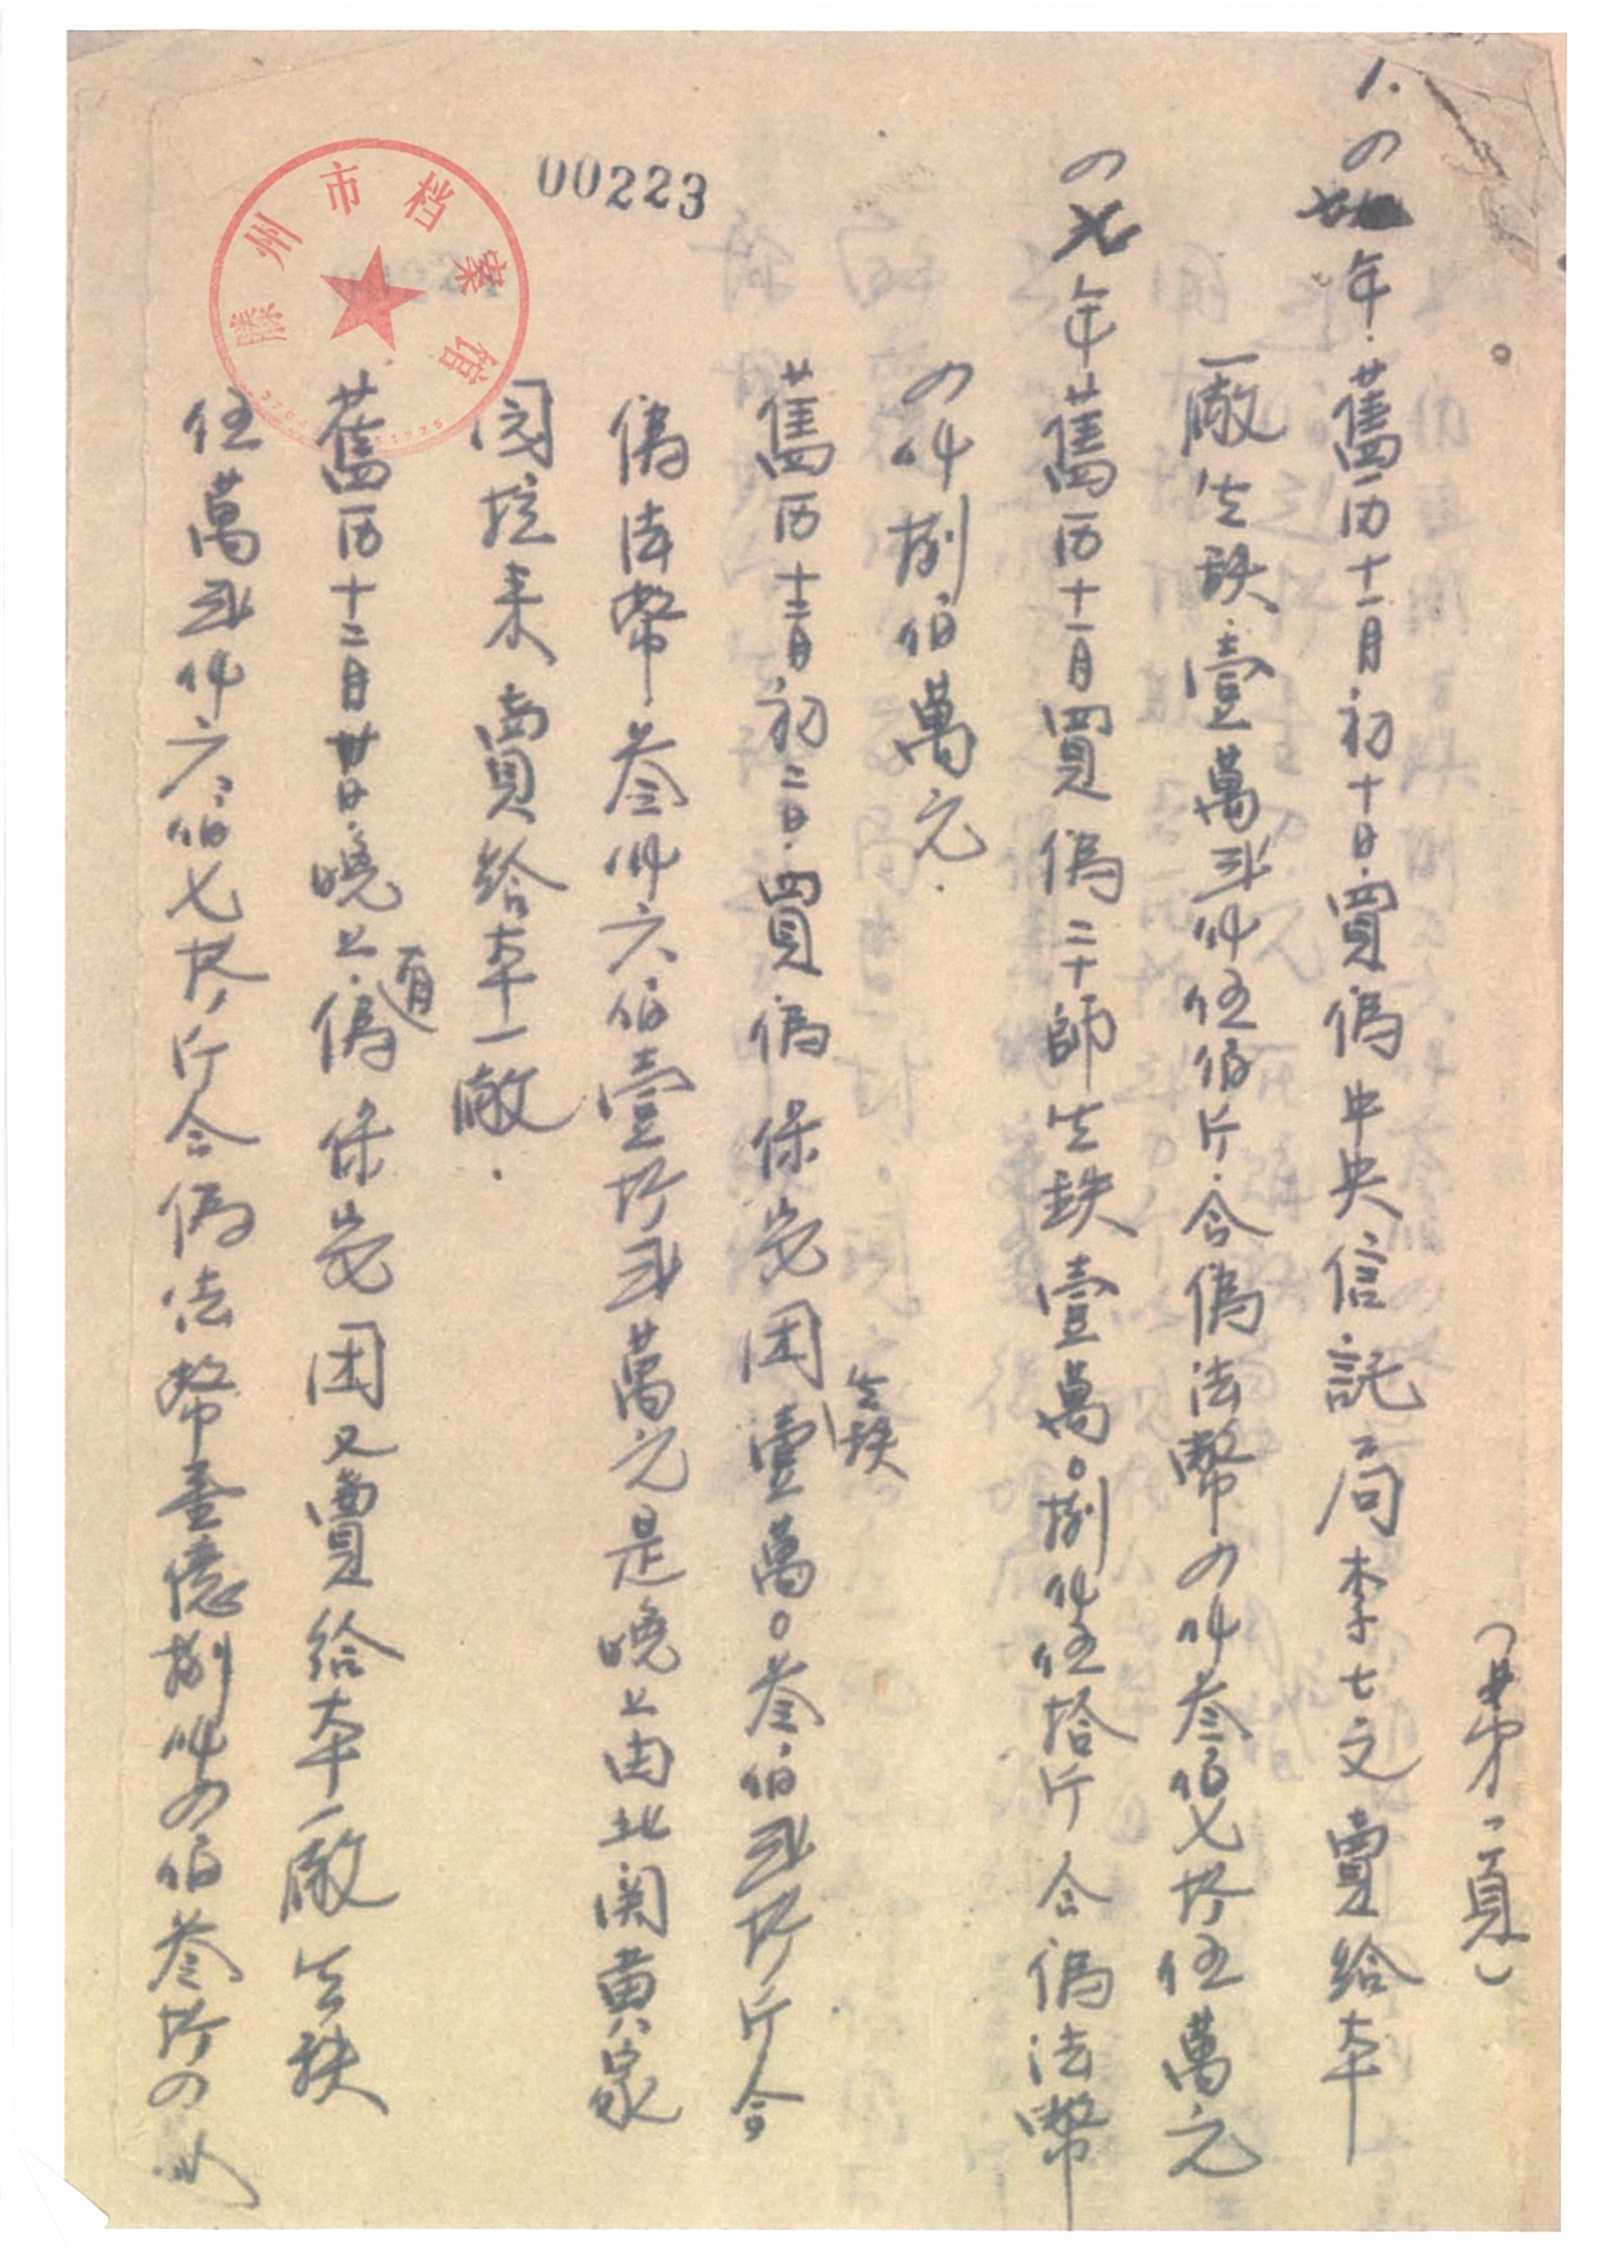 （第一頁）
1. 四年.舊历十一月初十日.買偽中央信託局李七文賣給本
一廠生鉄.壹萬弍仟伍伯斤.合偽法幣四仟叁伯七拾伍萬元
四七年舊历十一月買偽二十師生鉄壹萬〇捌仟伍拾斤合偽法幣
四仟捌伯萬元.
舊历十二月初二日.買偽保安团生鉄壹萬〇叁伯弍拾斤合
偽法幣叁仟六伯壹拾弍萬元是晚上由北関黄家
圂挖来賣給本一廠.
舊历十二月廿日.晚上.有偽保安团又賣給本一廠生鉄
伍萬弍仟六伯七拾斤合偽法幣壹億捌仟四伯叁拾四
00223
滕州市档案馆